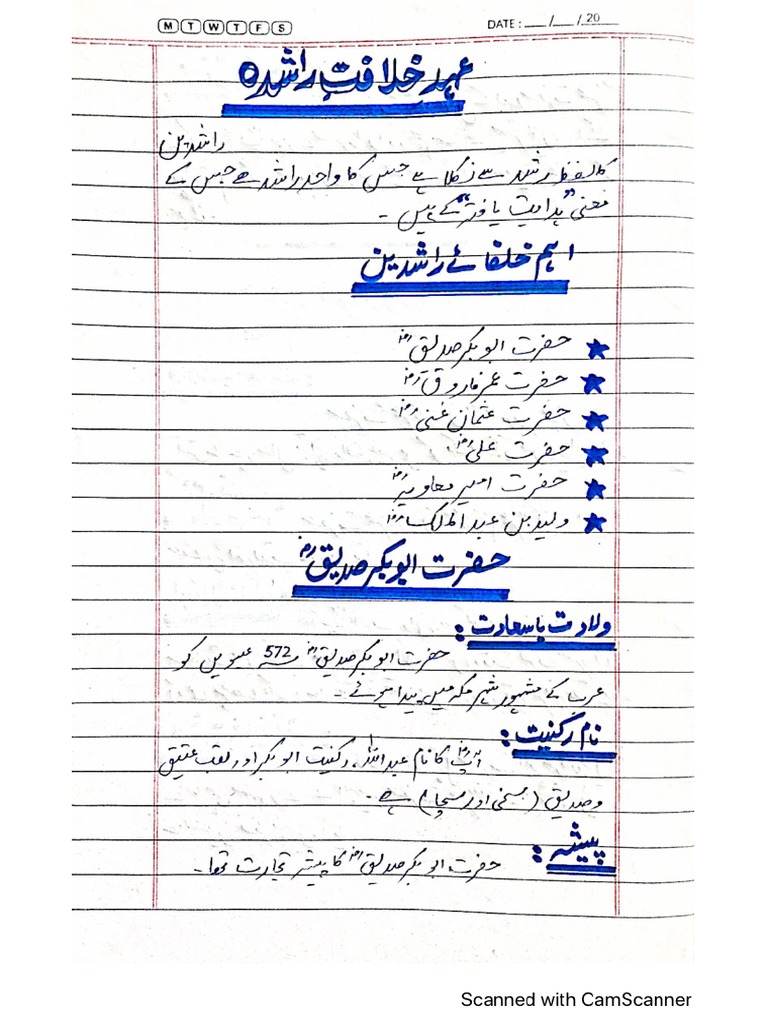 M T W T F S
DATE: __/__/20__
عہد خلافتِ راشدہ
راشدین
کا لفظ رشد سے نکلا ہے جس کا واحد راشد ہے جس کے
معنی "ہدایت یافتہ" کے ہیں۔
اہم خلفائے راشدین
حضرت ابوبکر صدیقؓ
حضرت عمر فاروقؓ
حضرت عثمان غنیؓ
حضرت علیؓ
حضرت امیر معاویہؓ
ولید بن عبدالملکؓ
حضرت ابوبکر صدیقؓ
ولادت باسعادت:
حضرت ابوبکر صدیقؓ 572ء عیسویں کو
عرب کے مشہور شہر مکہ میں پیدا ہوئے۔
نام رکنیت:
آپؓ کا نام عبداللہ، رکنیت ابوبکر اور لقب عتیق
و صدیق (سخی اور سچا) ہے۔
پیشہ:
حضرت ابوبکر صدیقؓ کا پیشہ تجارت تھا۔
Scanned with CamScanner